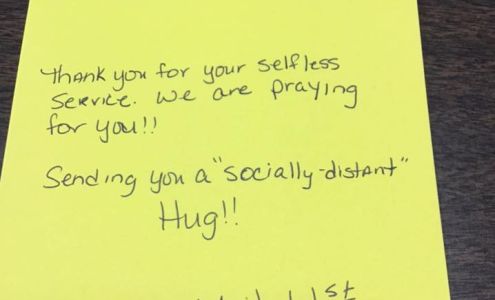 Thank you for your selfless
service. We are praying
for you!!
Sending you a "socially-distant"
Hug!!
1st